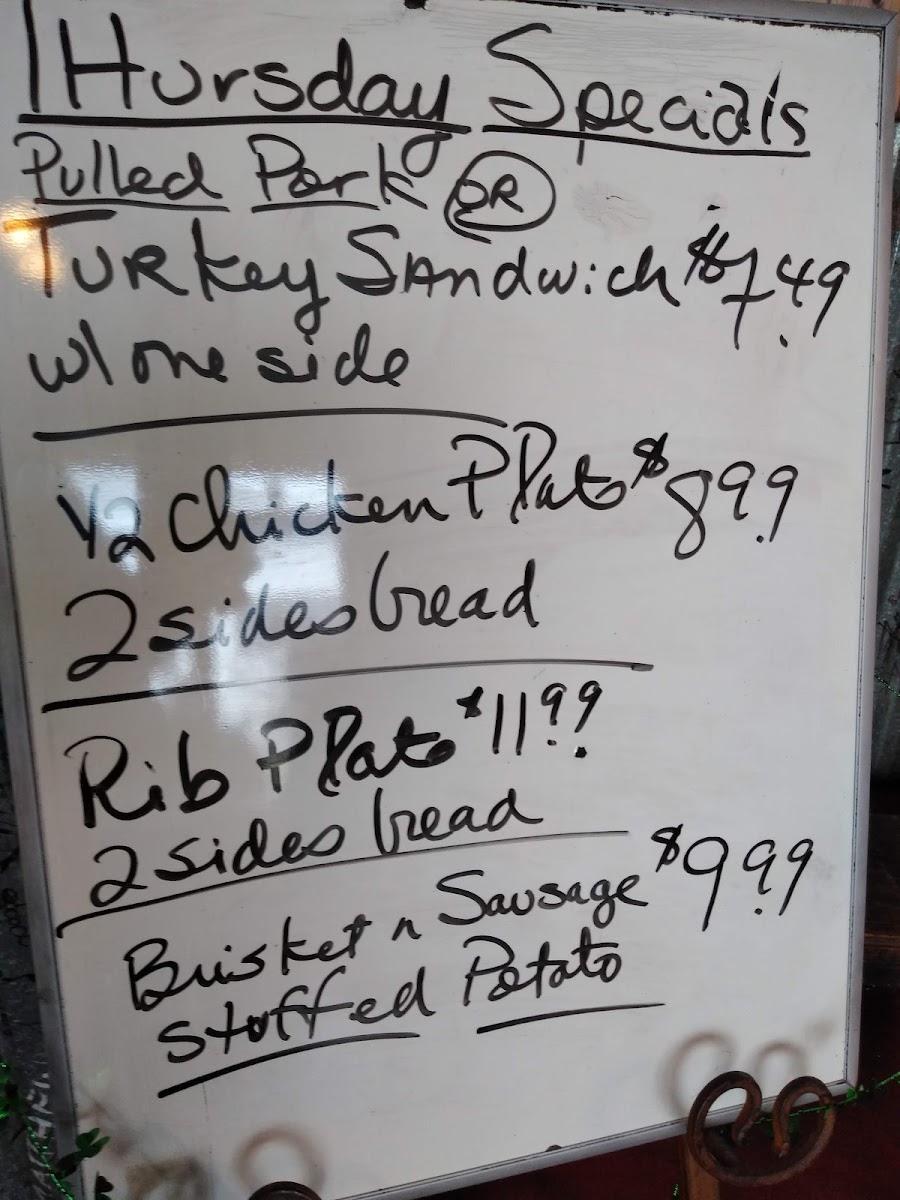 THursday Specials
Pulled Pork OR
TURkey SANdwich $7.49
w/ one side
1/2 Chicken Plate $8.99
2 sides bread
Rib Plate $11.99
2 sides bread
Brisket n Sausage $9.99
Stuffed Potato